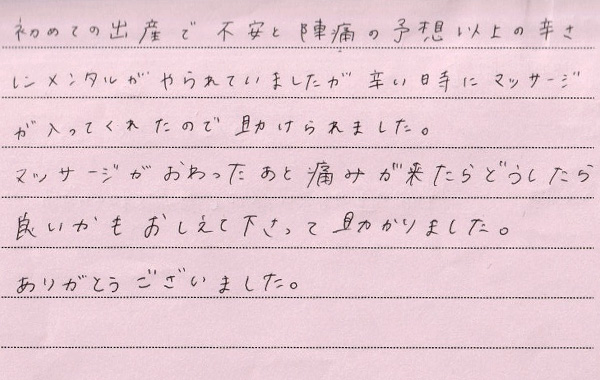 初めての出産で不安と陣痛の予想以上の辛さ
にメンタルがやられていましたが辛い時にマッサージ
が入ってくれたので助けられました。
マッサージがおわったあと痛みが来たらどうしたら
良いかもおしえて下さって助かりました。
ありがとうございました。